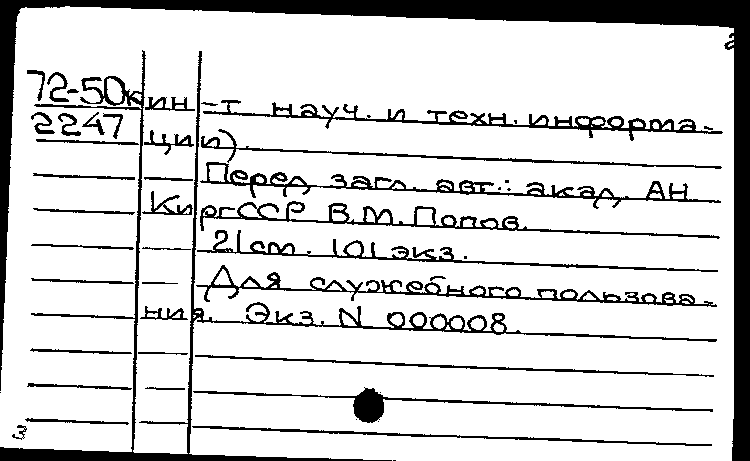 72-50к
2247
ин-т науч. и техн. информа-
ции).
Перед загл. авт.: акад. АН
КиргССР В.М. Попов.
21 см. 101 экз.
Для служебного пользова-
ния. Экз. N 000008.
3